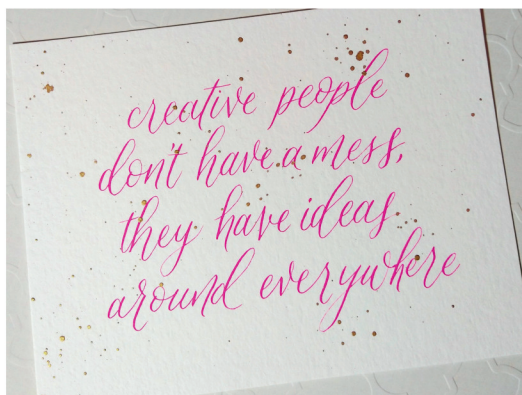 creative people
don't have a mess,
they have ideas
around everywhere